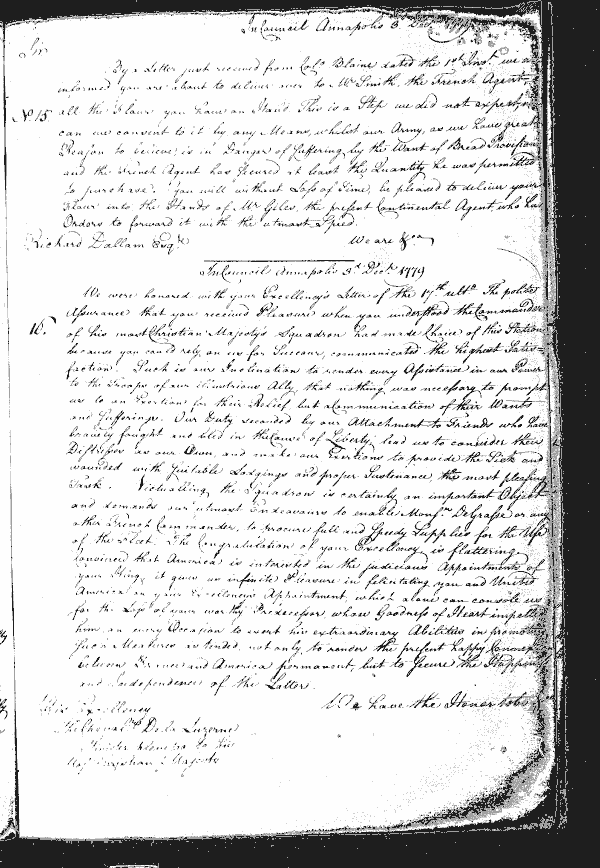 In Council Annapolis 3. Decr. 1779
Sir
By a Letter just received from Colo. Blaine dated the 1st Inst. we are
informed you are about to deliver over to Mr. Smith, the French Agent,
No. 15. all the Flour you have on Hand. This is a Step we did not expect, nor
can we consent to it by any Means, whilst our Army, as we have great
Reason to believe, is in Danger of suffering by the Want of Bread Provision
and the French Agent has secured at least the Quantity he was permitted
to purchase. You will without Loss of Time, be pleased to deliver your
Flour into the Hands of Mr. Giles, the present Continental Agent, who has
Orders to forward it with the utmost Speed.
Richard Dallam Esqr. We are &ca
In Council Annapolis 3d. Decr. 1779
We were honored with your Excellency's Letter of the 17th ulto. The polite
16. Assurance that you received Pleasure when you understood the Commander
of his most Christian Majesty's Squadron had made Choice of this Station
because you could rely on us for Succour, communicated the highest Satis-
faction. Such is our Inclination to render every Assistance in our Power
to the Troops of our illustrious Ally, that nothing was necessary to prompt
us to an Exertion for their Relief, but a Communication of their Wants
and Sufferings. Our Duty seconded by our Attachment to Friends who have
bravely fought and bled in the Cause of Liberty, lead us to consider their
Distresses as our Own, and make our Exertions to provide the Sick and
wounded with suitable Lodgings and proper Sustenance, the most pleasing
Task. Victualling the Squadron is certainly an important Object
and demands our utmost Endeavours to enable Monsr. De Grasse or any
other French Commander, to procure full and speedy Supplies for the Use
of the Fleet. The Congratulation of your Excellency is flattering,
convinced that America is interested in the judicious Appointments of
your King, it gives us infinite Pleasure in felicitating you and United
America on your Excellency's Appointment, which alone can console us
for the Loss of your worthy Predecessor, whose Goodness of Heart impelled
him on every Occasion to exert his extraordinary Abilities in promoting
such Measures as tended, not only to render the present happy Connexion
between France and America permanent, but to secure the Happiness
and Independence of the Latter.
His Excellency We have the Honor to be
The Chevalr. De la Luzerne
Minister plenipo to his
Most Christian Majesty